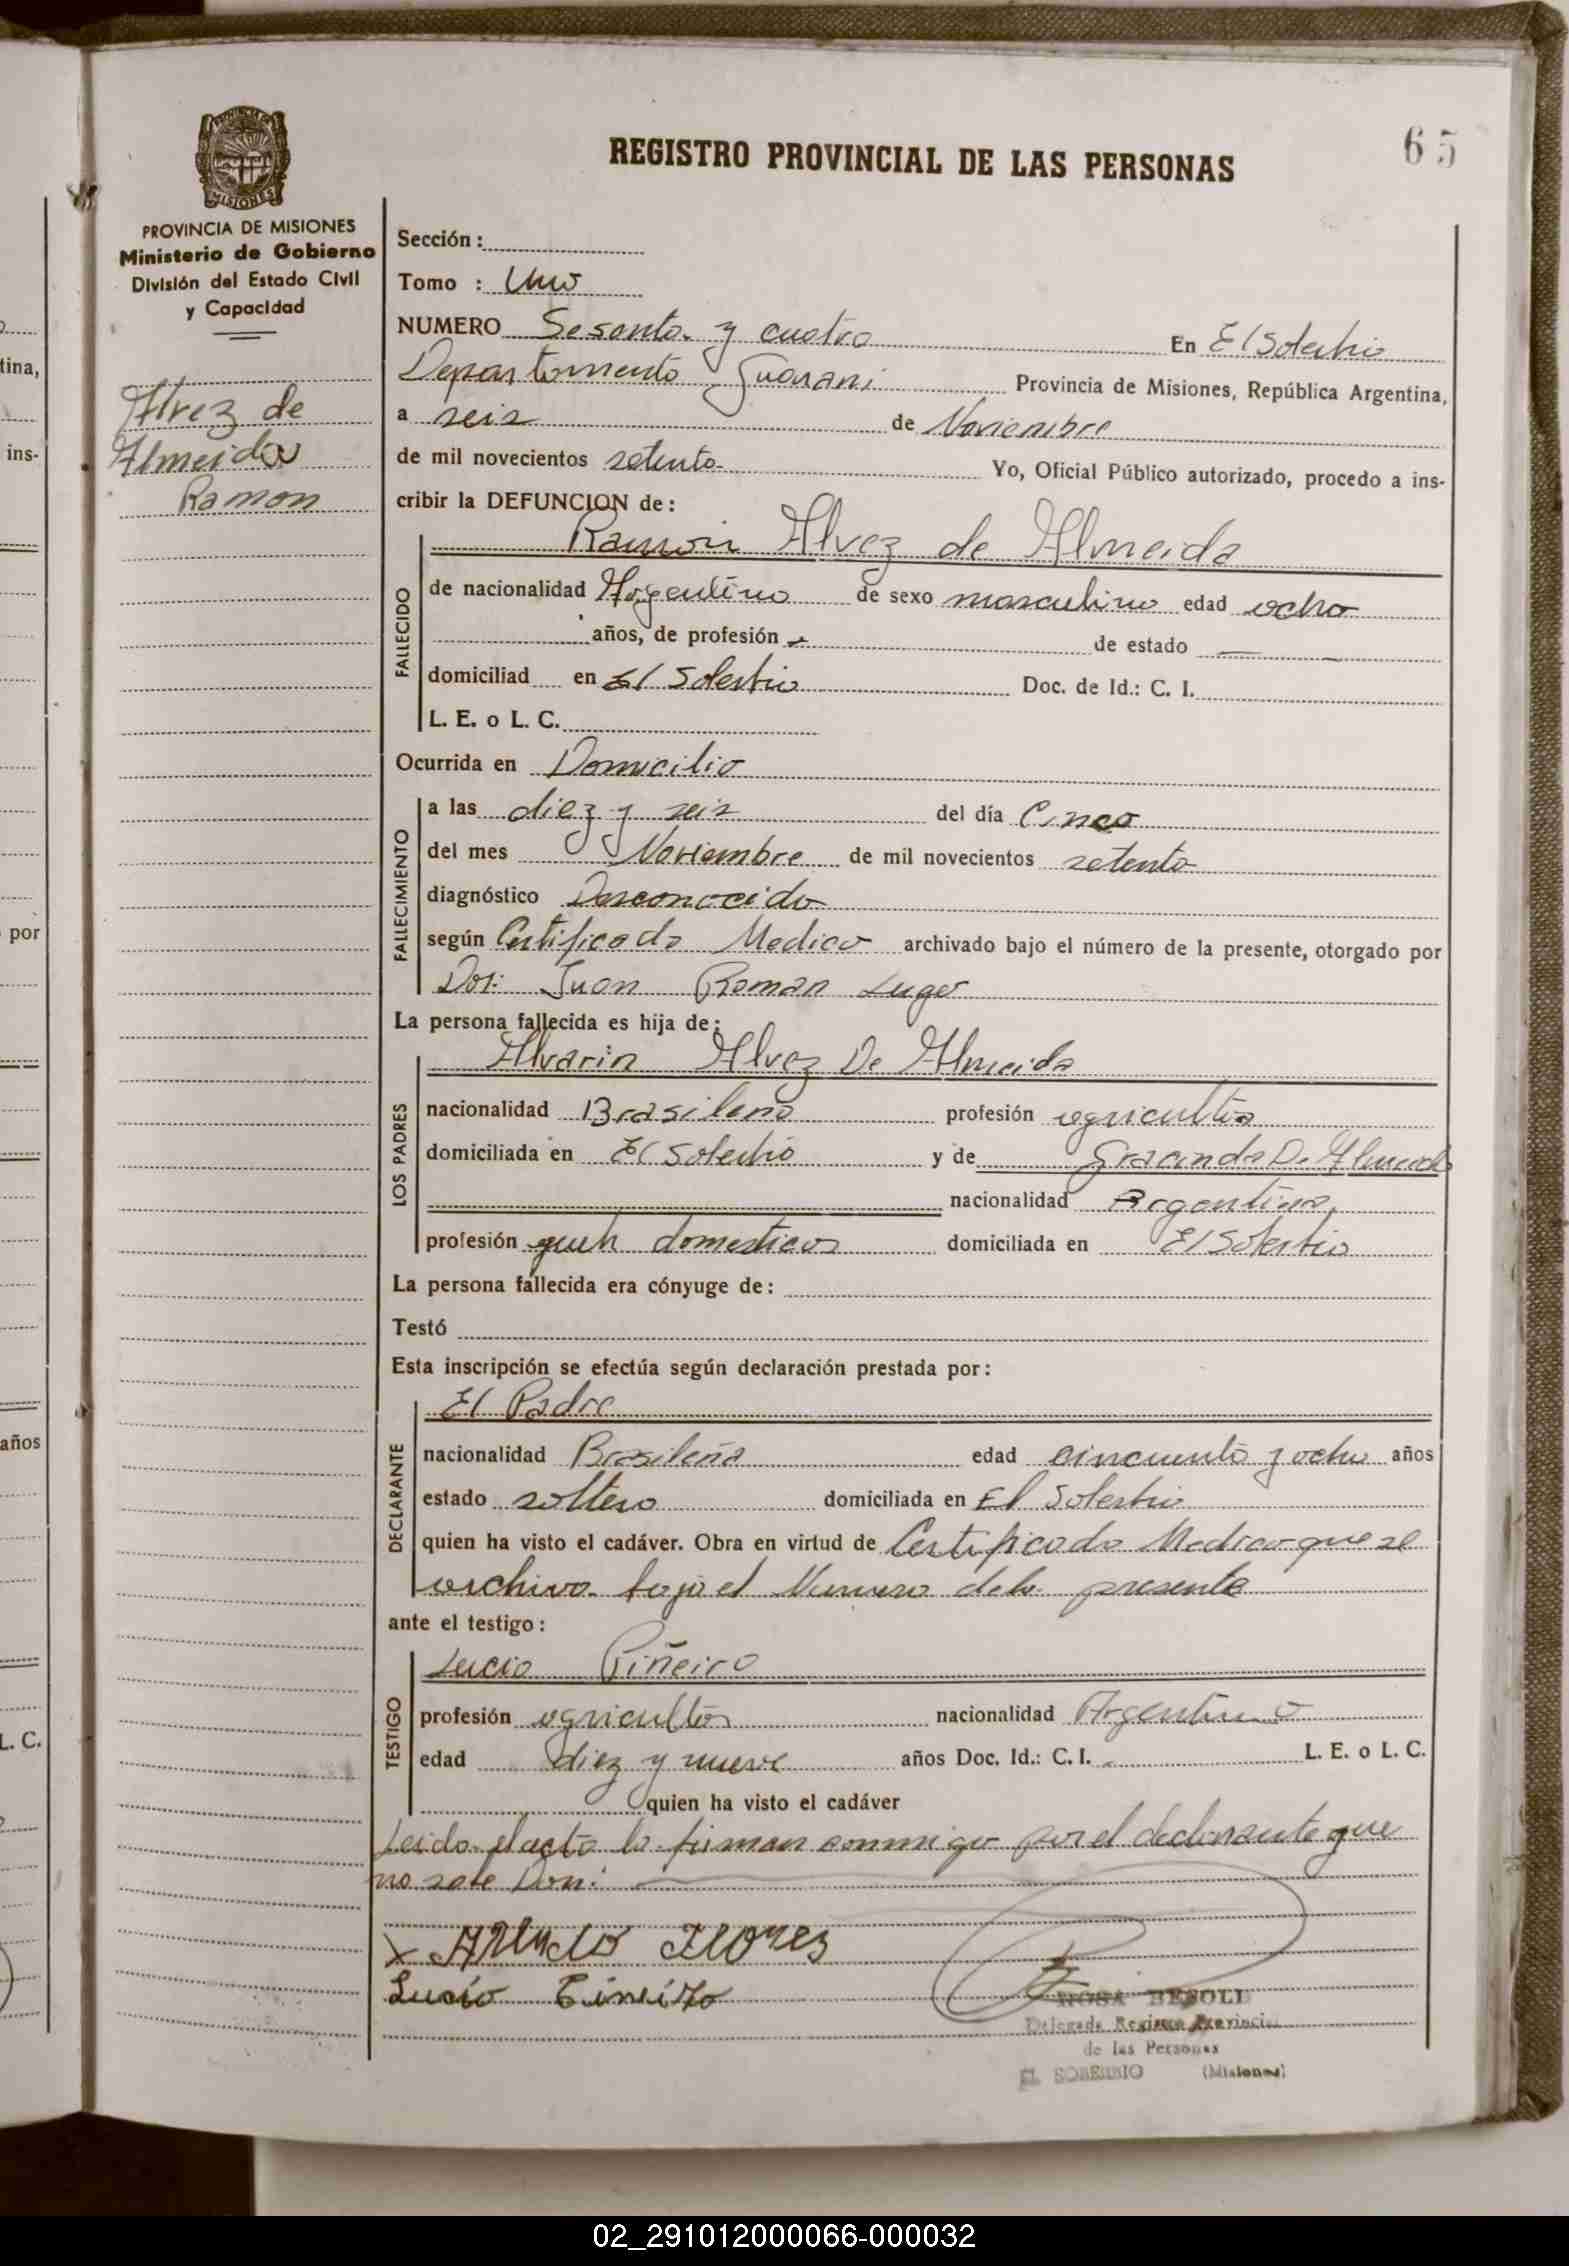 65
REGISTRO PROVINCIAL DE LAS PERSONAS
PROVINCIA DE MISIONES
MISIONES
PROVINCIA DE MISIONES
Ministerio de Gobierno
División del Estado Civil
y Capacidad
Alvez de
Almeida
Ramon
Sección:
Tomo : Uno
NUMERO Sesenta y cuatro En El Soberbio
Departamento Guarani Provincia de Misiones, República Argentina,
a seis de Noviembre
de mil novecientos setenta Yo, Oficial Público autorizado, procedo a ins-
cribir la DEFUNCION de:
Ramon Alvez de Almeida
FALLECIDO
de nacionalidad Argentino de sexo masculino edad ocho
años, de profesión - de estado —
domiciliad en El Soberbio Doc. de Id.: C. I.
L. E. o L. C.
Ocurrida en Domicilio
FALLECIMIENTO
a las diez y seis del día Cinco
del mes Noviembre de mil novecientos setenta
diagnóstico Desconocido
según Certificado Medico archivado bajo el número de la presente, otorgado por
Dor: Juan Roman Lugo
La persona fallecida es hija de:
Alvarin Alvez De Almeida
LOS PADRES
nacionalidad Brasileña profesión agricultor
domiciliada en El Soberbio y de Gracinda De Almeida
nacionalidad Argentina
profesión domesticos domiciliada en El Soberbio
La persona fallecida era cónyuge de:
Testó
Esta inscripción se efectúa según declaración prestada por:
El Padre
DECLARANTE
nacionalidad Brasileña edad cincuenta y ocho años
estado soltero domiciliada en El Soberbio
quien ha visto el cadáver. Obra en virtud de Certificado Medico que se
archiva bajo el Numero de la presente
ante el testigo:
Lucio Piñeiro
TESTIGO
profesión agricultor nacionalidad Argentino
edad diez y nueve años Doc. Id.: C. I. L. E. o L. C.
quien ha visto el cadáver
Leida el acta la firman conmigo por el declarante que
no sabe Don:
X Arlndo Flores
Lucio Piñeiro
ROSA
Delegada Registro Provincial
de las Personas
EL SOBERBIO (Misiones)
tina,
ins-
por
años
L. C.
02_291012000066-000032